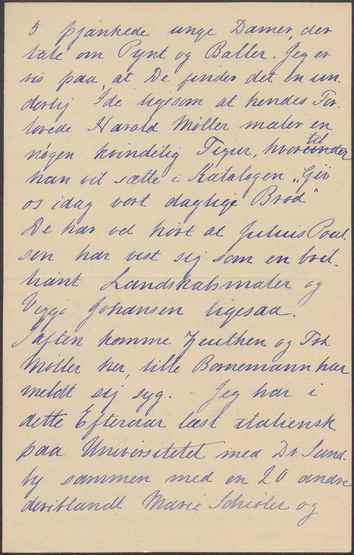 5 pjankede unge Damer, der
tale om Pynt og Baller. Jeg er
vis paa, at De finder det en un
derlig Ide ligesom at hendes For
lovede Harald Møller maler en
nøgen kvindelig Figur, hvorunder til
han vil sætte i Katalogen „Giv
os idag vort daglige Brød"
De har vel hørt at Julius Poul
sen har vist sig som en bril
liant Landskabsmaler og
Viggo Johansen ligesaa.
I aften komme Zeuthen og Frk
Møller her, lille Bornemann har
meldt sig syg. Jeg har i
dette Efteraar læst italiensk
paa Universitetet med Dr. Sund
by sammen med en 20 andre
deriblandt Marie Schiøler og